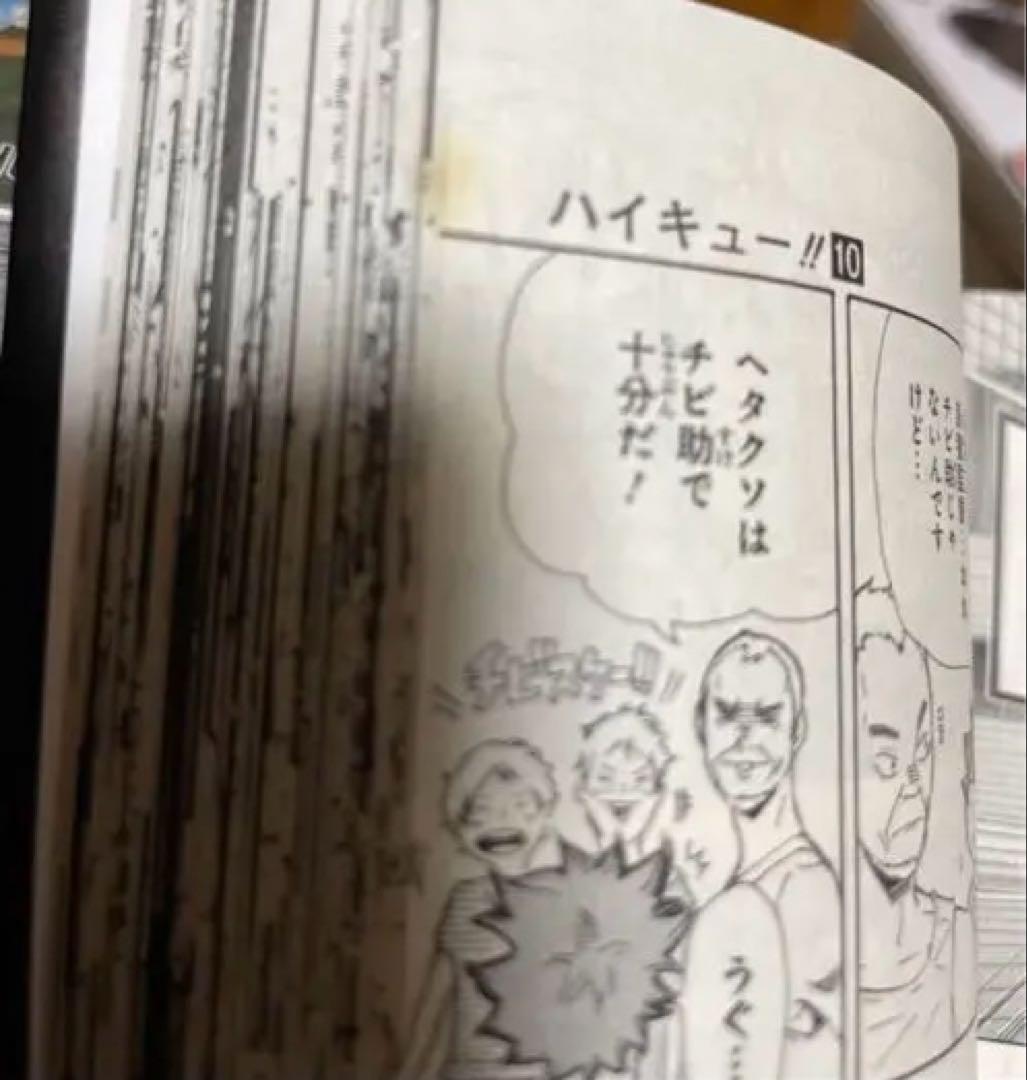 ハイキュー!! 10
チビ助じゃ
ないんです
けど…
ヘタクソは
チビ助で
十分だ！
チビスケー!!
うぐ…